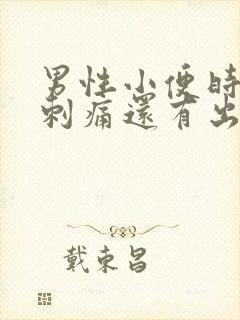 男性小便時
刺痛還有出
戴東昌